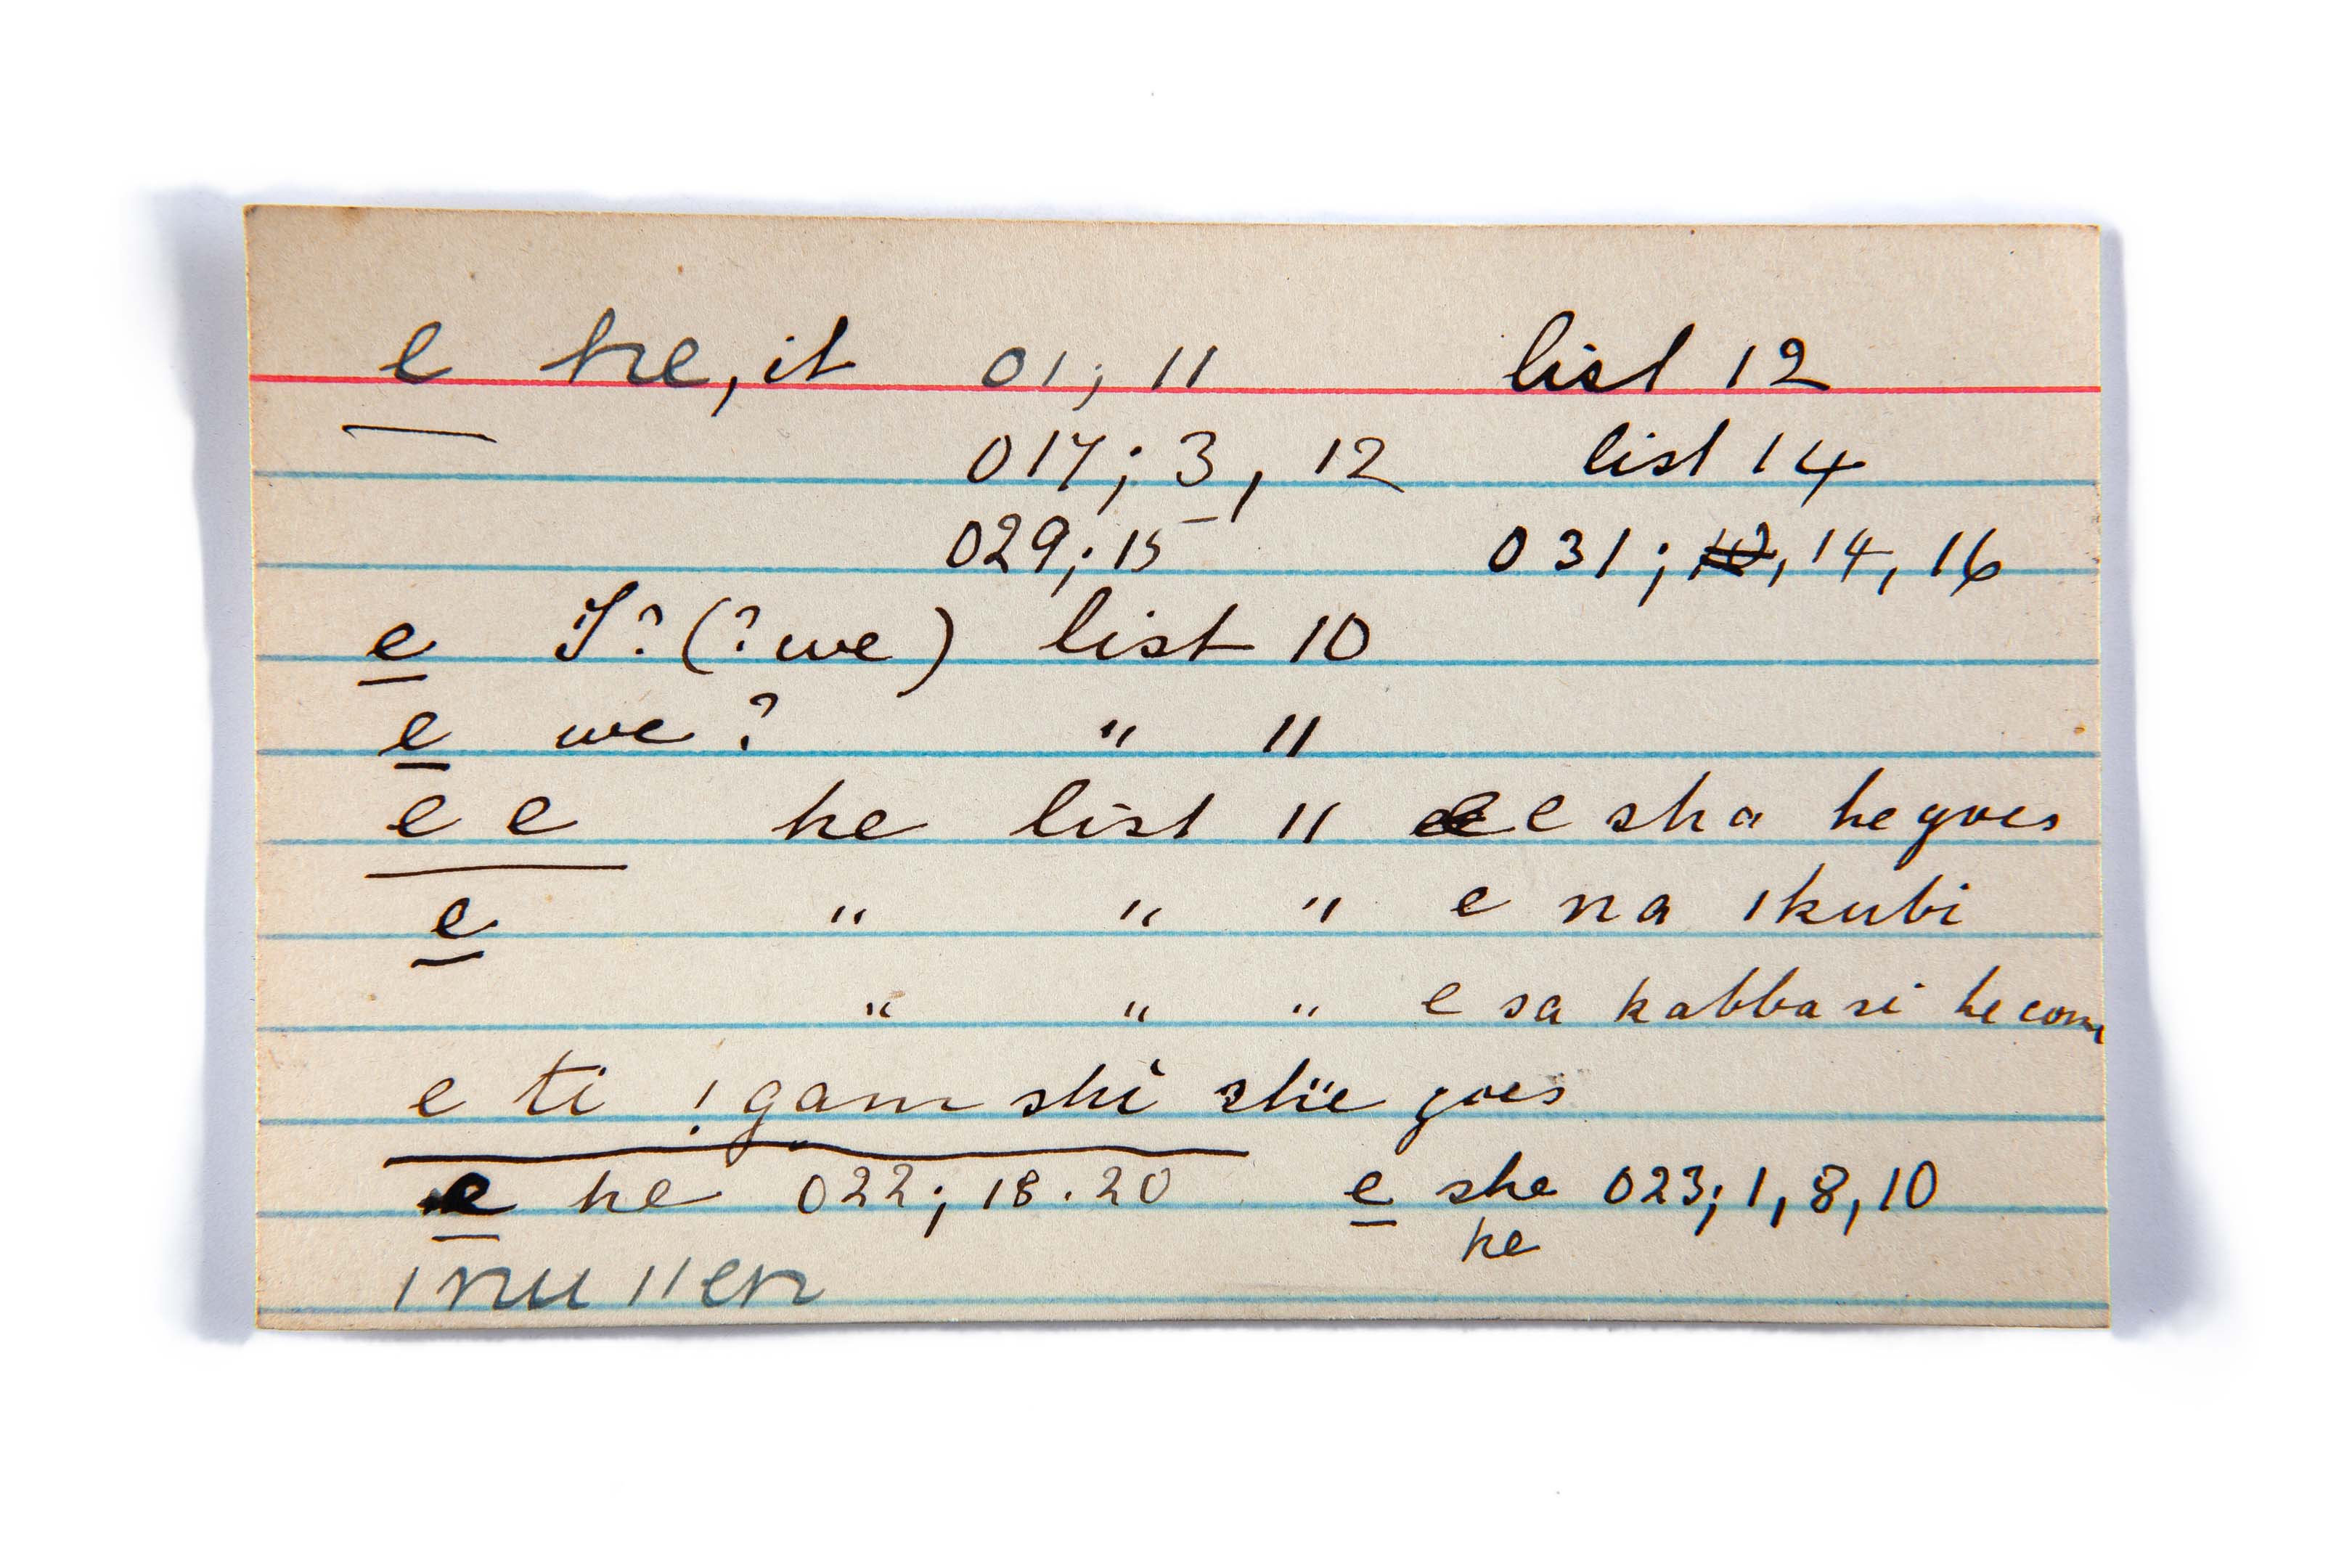 e he, it 01; 11 list 12
017; 3, 12 list 14
029; 15 031; 12, 14, 16
e I? (? we) list 10
e we? " 11
e e he list 11 e sha he goes
e " " " e na ıkubi
" " " e sa kabba si he come
e ti !gam shi she goes
e he 022; 18.20 e she 023; 1, 8, 10
he
ı nu ıı en